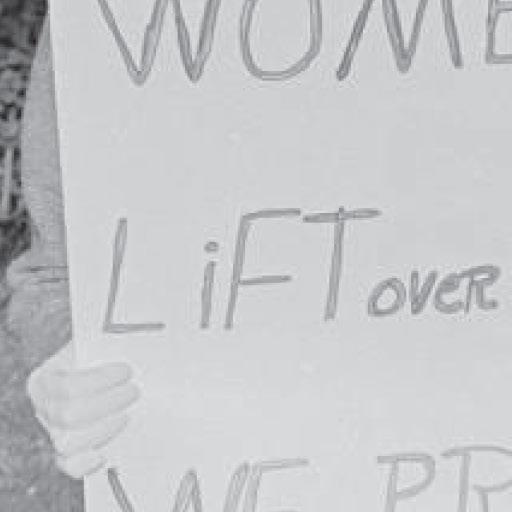 WOME
LiFT OVER
WE PR